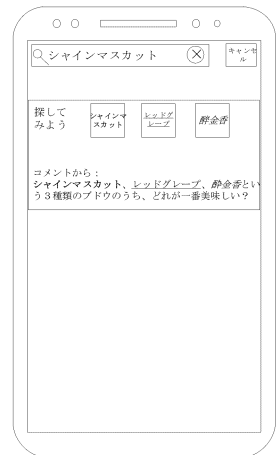 シャインマスカット
キャンセ
ル
探して
みよう
シャインマ
スカット
レッドグ
レープ
酔金香
コメントから：
シャインマスカット、レッドグレープ、酔金香とい
う３種類のブドウのうち、どれが一番美味しい？